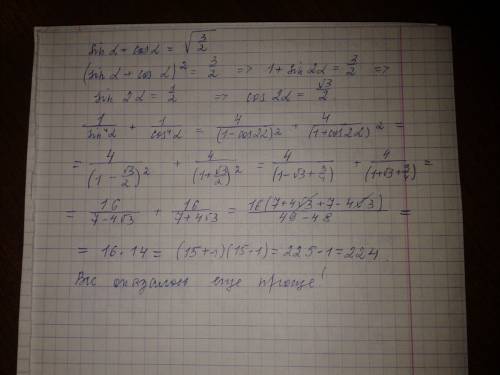 sin α + cos α = √(3/2)
(sin α + cos α)² = 3/2 => 1 + sin 2α = 3/2 =>
sin 2α = 1/2 => cos 2α = √3/2
1/sin⁴α + 1/cos⁴α = 4/(1-cos2α)² + 4/(1+cos2α)² =
= 4/(1 - √3/2)² + 4/(1+√3/2)² = 4/(1-√3+3/4) + 4/(1+√3+3/4) =
= 16/(7-4√3) + 16/(7+4√3) = 16(7+4√3+7-4√3)/(49-48) =
= 16·14 = (15+1)(15-1) = 225-1 = 224.
Всё оказалось еще проще!